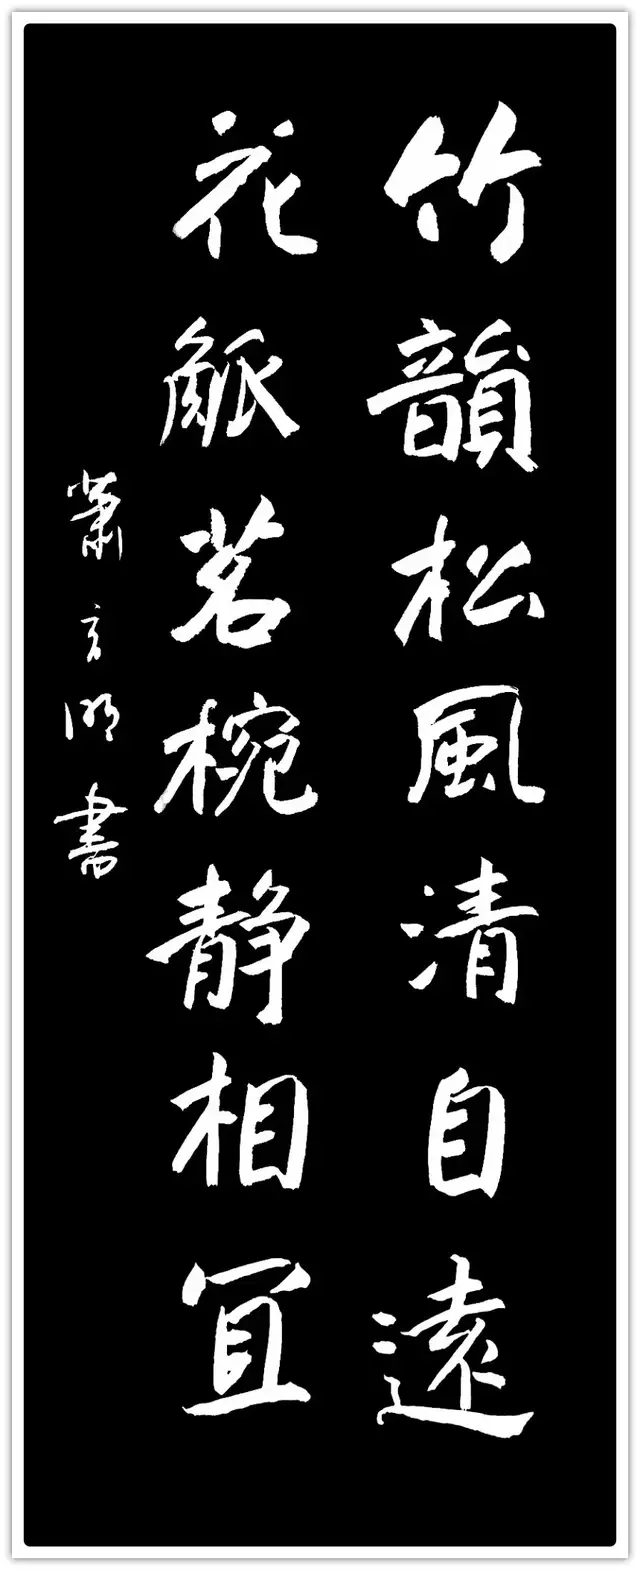 竹韻松風清自遠
花觚茗椀静相宜
蕭方明書